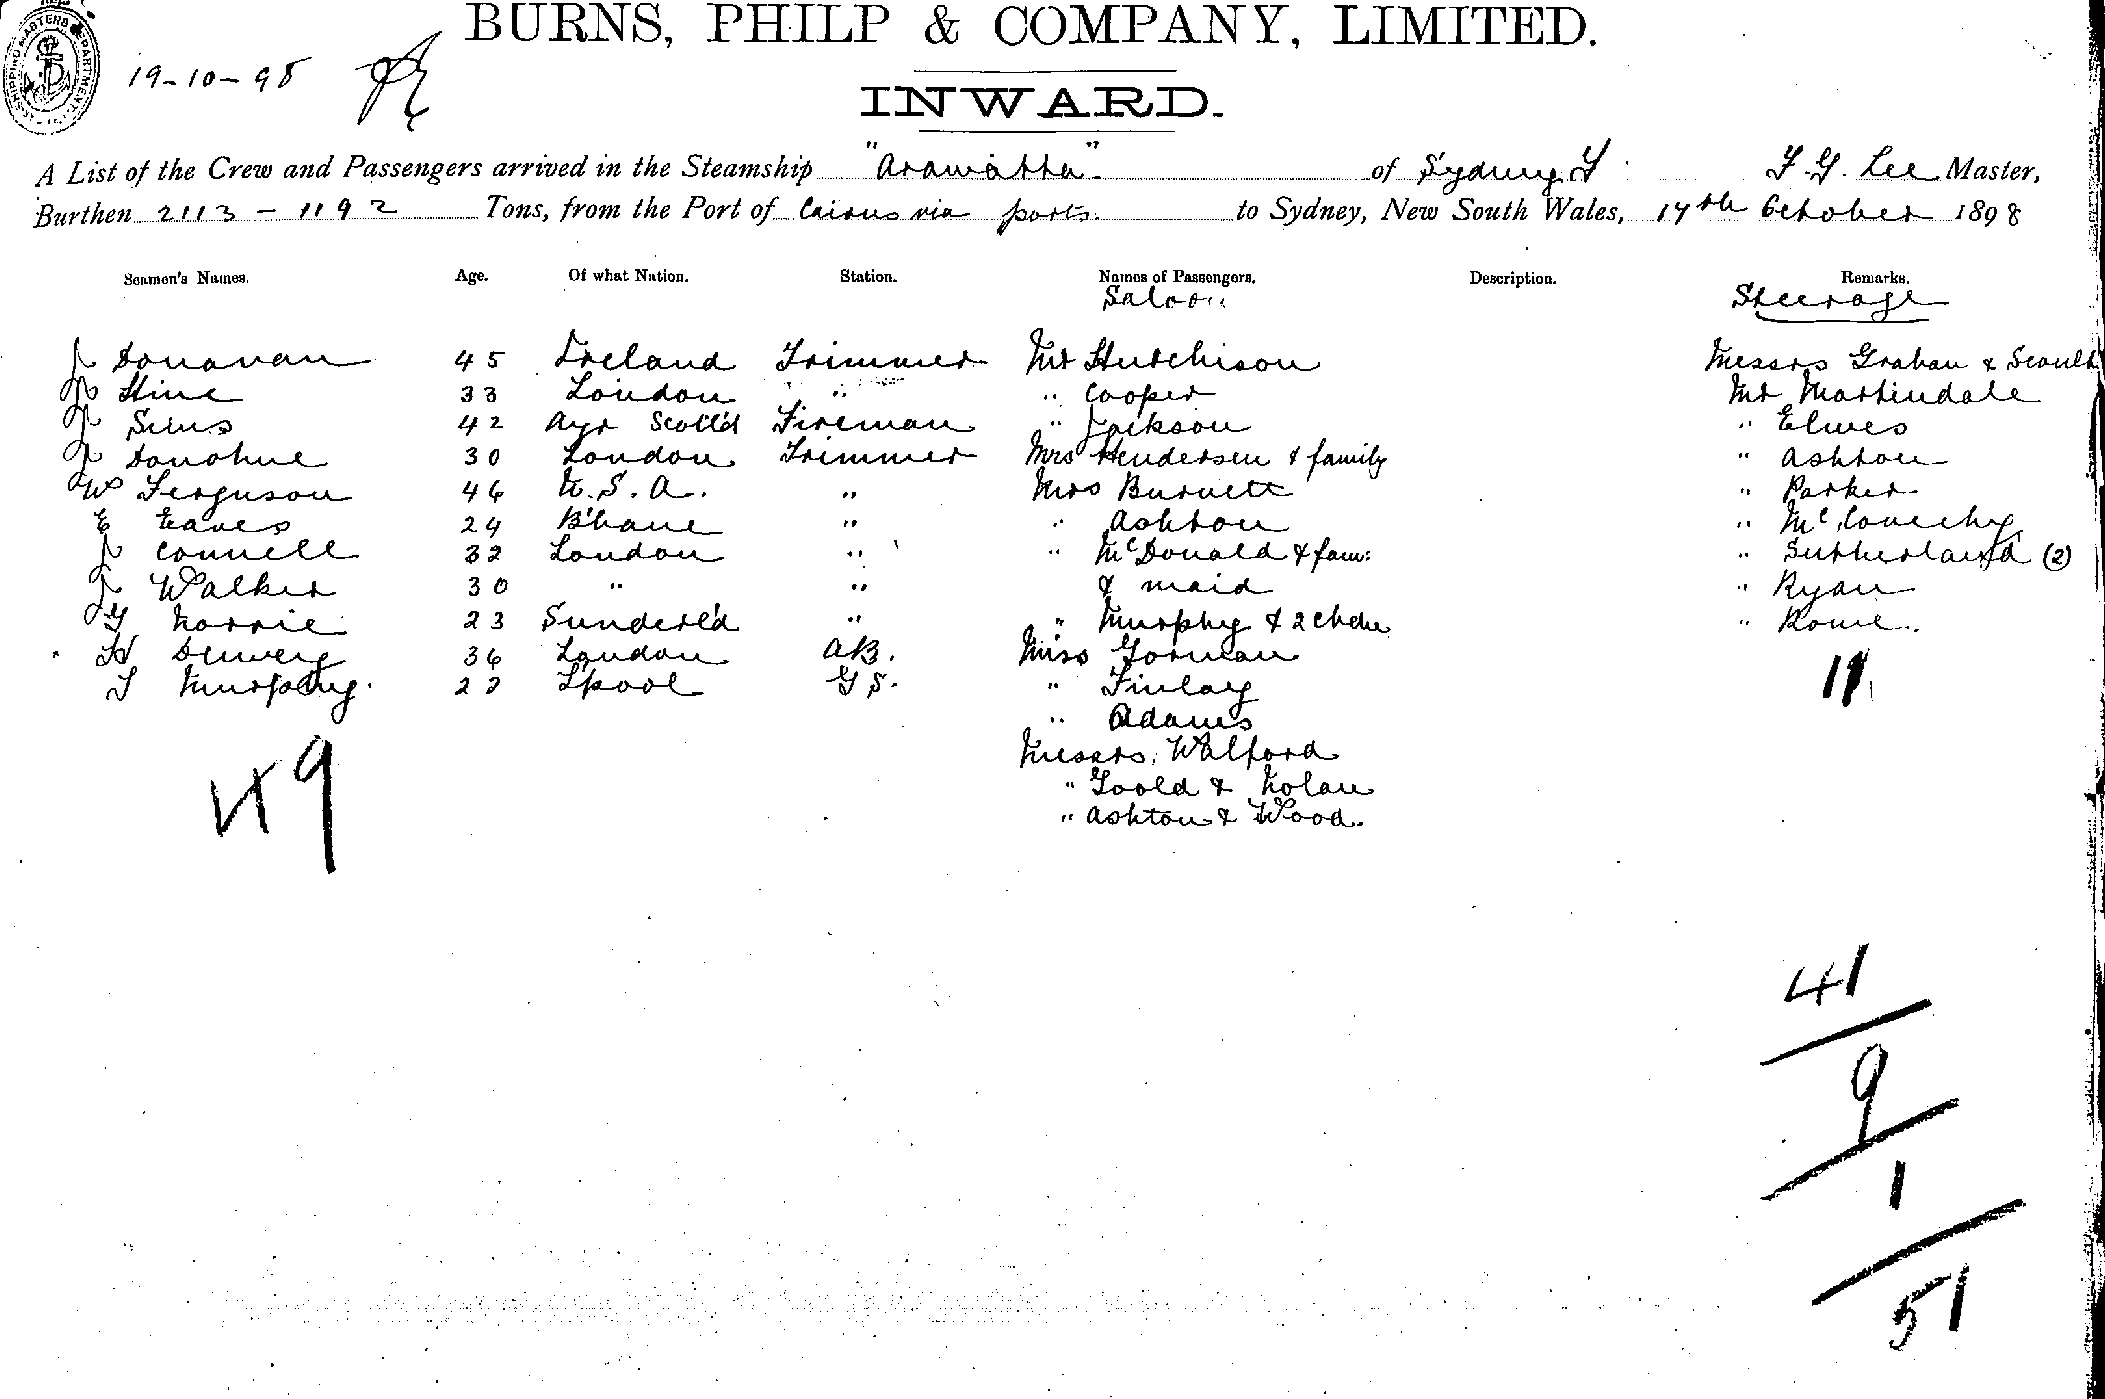 BURNS, PHILP & COMPANY, LIMITED.
19-10-98
INWARD.
A List of the Crew and Passengers arrived in the Steamship "Aramatta" of Sydney F. G. Lee Master,
Burthen 2113 - 1192 Tons, from the Port of Cairns via ports. to Sydney, New South Wales, 17th October 1898
Seamen's Names. Age. Of what Nation. Station. Names of Passengers. Description. Remarks.
Saloon Steerage
J Donovan 45 Ireland Trimmer Mr Hutchison Messrs Graham &
J Hine 33 London " " Cooper Mr Martindale
J Sims 42 Ayr Scott'd Fireman " Jackson " Elwes
J Donohue 30 London Trimmer Mrs Henderson & family " Ashton
W Ferguson 46 U.S.A. " Mrs Burnett " Parker
E Eaves 24 B'bane " " Ashton " Mc
J Connell 32 London " " McDonald & fam: " Sutherland (2)
J Walker 30 " " & maid " Ryan
G Norrie 23 Sunderl'd " " Murphy & 2 chdn " Rowe.
H 36 London AB. Miss Gorman
T Murphy. 27 L'pool GS. " Finlay 11
" Adams
Messrs. Walford
" Goold & Nolan
" Ashton & Wood.
49
41
9
1
51